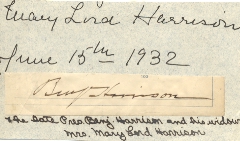 Mary Lord Harrison
June 15th 1932
Benj Harrison
the late Pres. Benj. Harrison and his widow
Mrs. Mary Lord Harrison